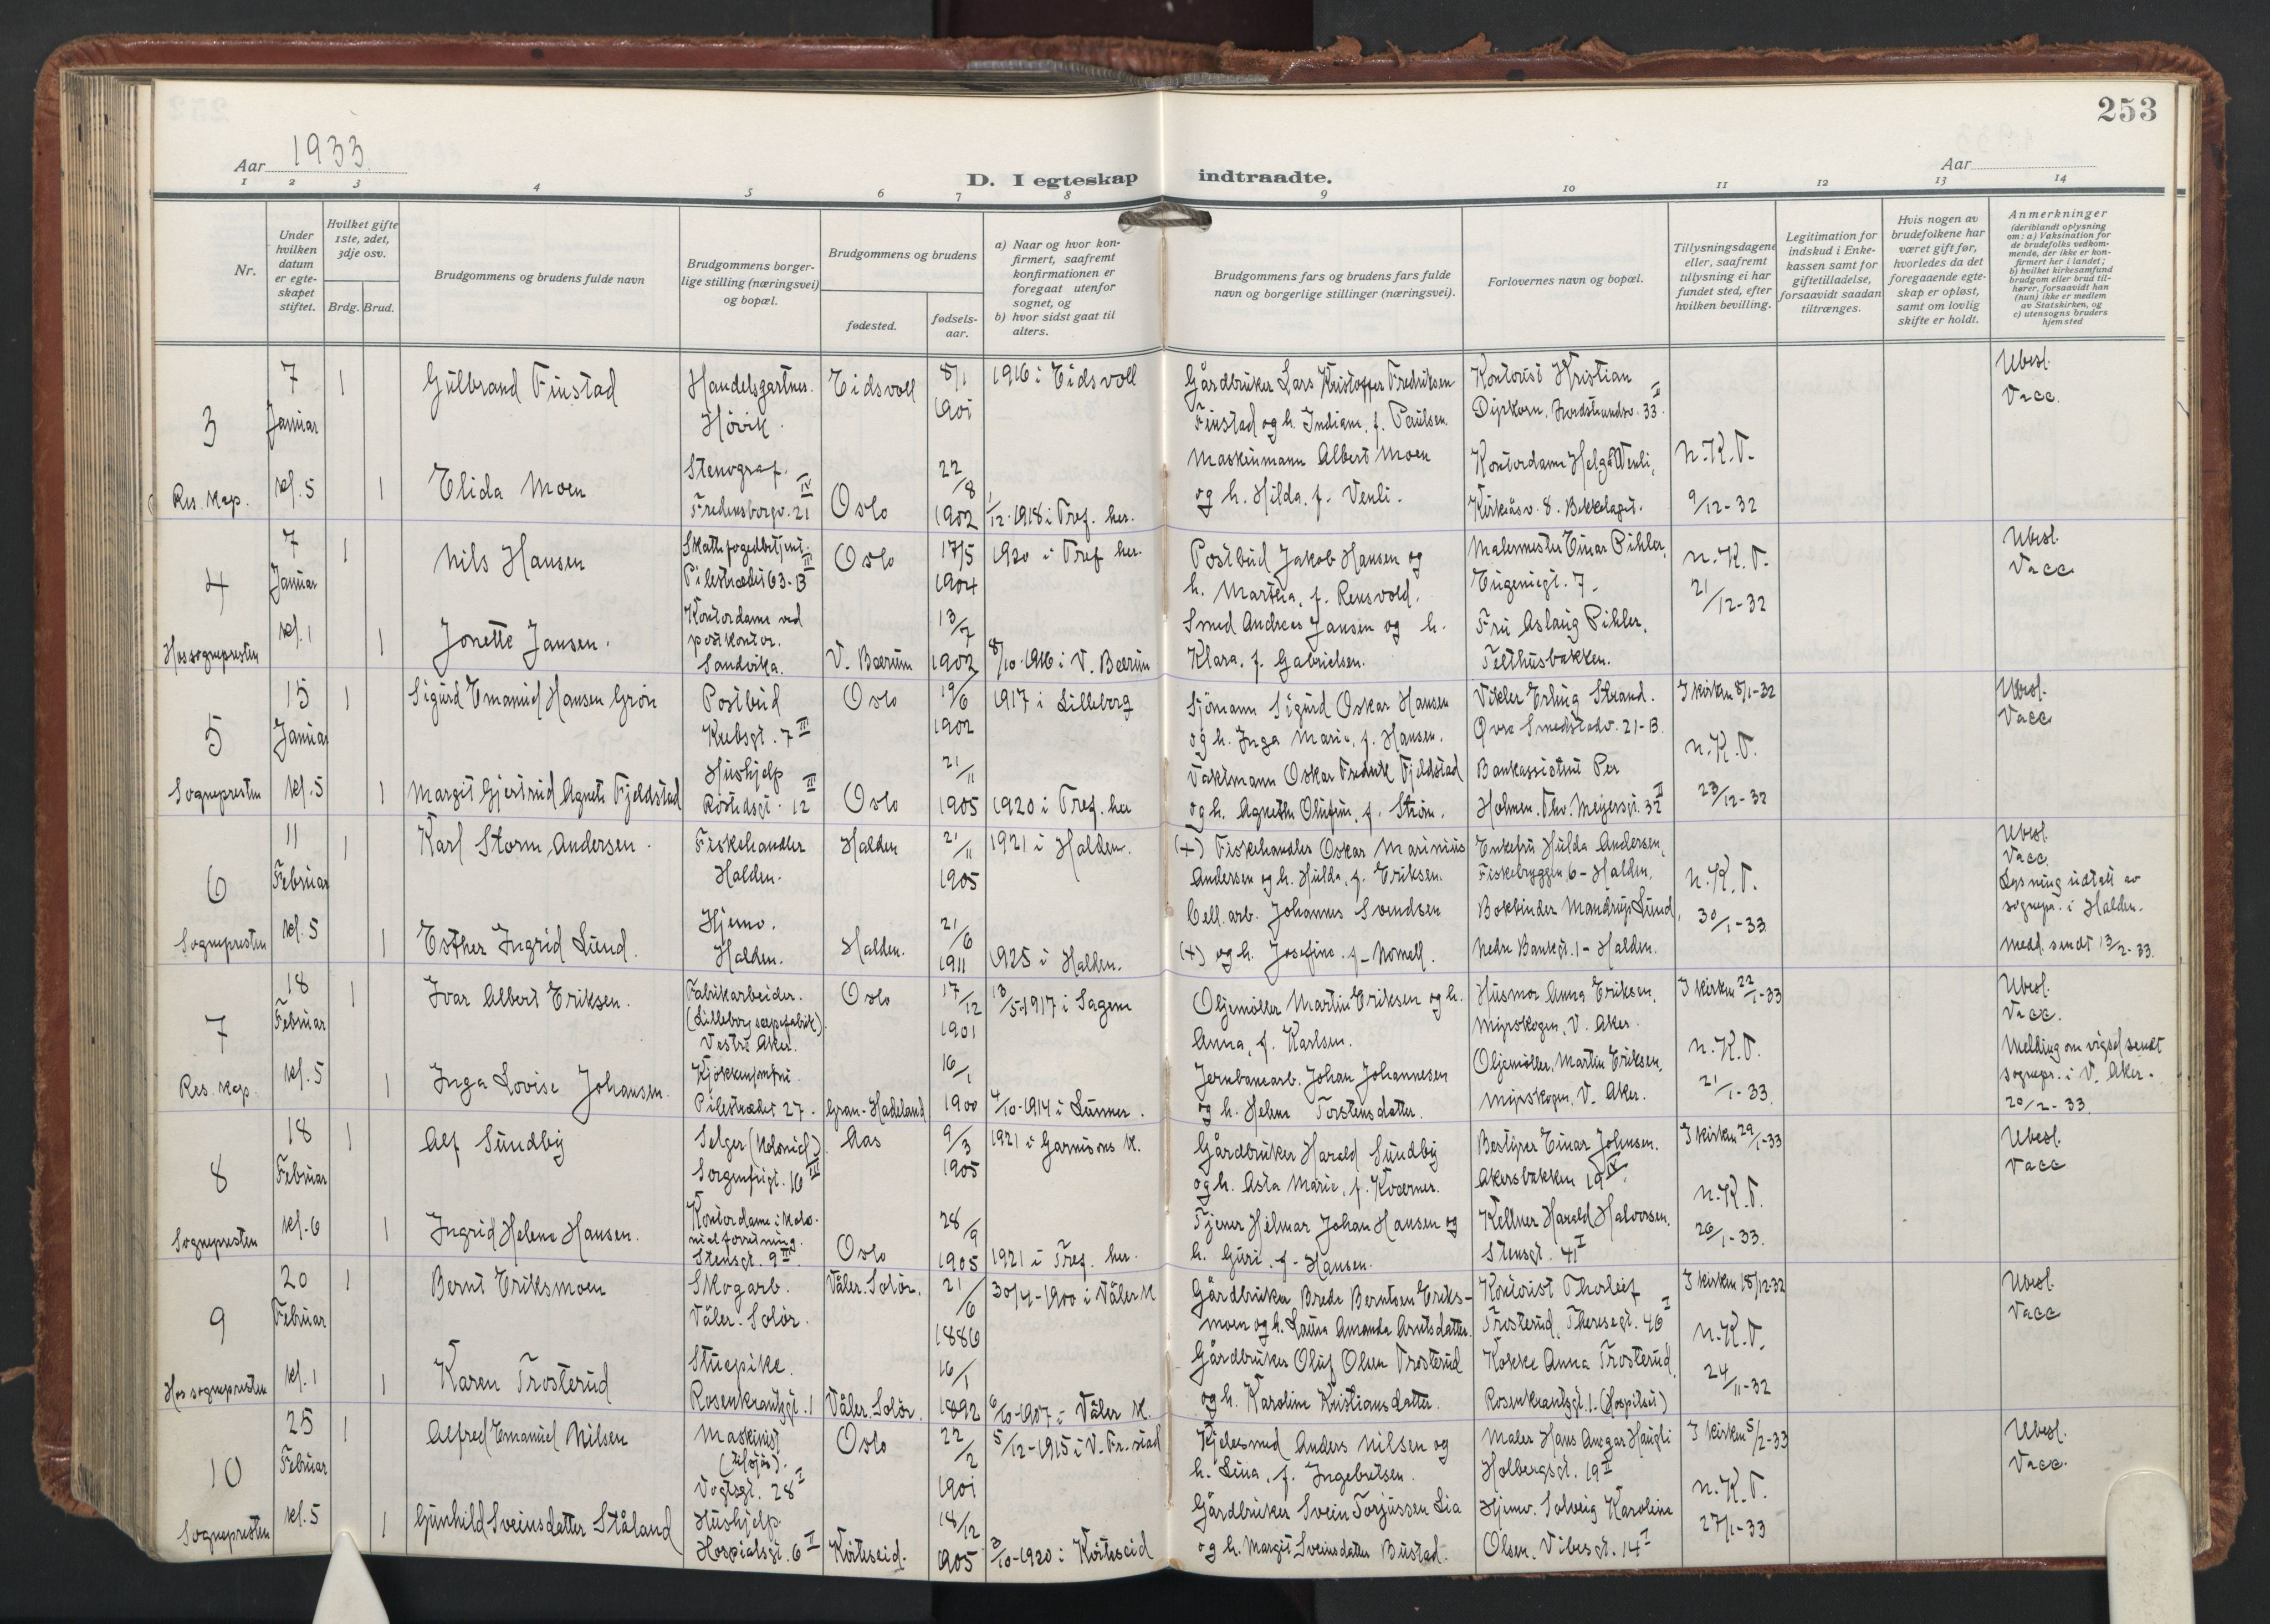 253
Aar 1933
Aar
D. I egteskap indtraadte.
1 2 3 4 5 6 7 8 9 10 11 12 13 14
Nr.
Under hvilken datum er egteskapet stiftet.
Hvilket gifte 1ste, 2det, 3dje osv.
Brdg. Brud.
Brudgommens og brudens fulde navn
Brudgommens borgerlige stilling (næringsvei) og bopæl.
Brudgommens og brudens
fødested.
fødselsaar.
a) Naar og hvor konfirmert, saafremt konfirmationen er foregaat utenfor sognet, og
b) hvor sidst gaat til alters.
Brudgommens fars og brudens fars fulde navn og borgerlige stillinger (næringsvei).
Forlovernes navn og bopæl.
Tillysningsdagene eller, saafremt tillysning ei har fundet sted, efter hvilken bevilling.
Legitimation for indskud i Enkekassen samt for giftetilladelse, forsaavidt saadan tiltrænges.
Hvis nogen av brudefolkene har været gift før, hvorledes da det foregaaende egteskap er opløst, samt om lovlig skifte er holdt.
Anmerkninger (deriblandt oplysning om: a) Vaksination for de brudefolks vedkommende, der ikke er konfirmert her i landet; b) hvilket kirkesamfund brudgom eller brud tilhører, forsaavidt han (hun) ikke er medlem av Statskirken, og c) utensogns bruders hjemsted
3
Res. kap.
7 Januar kl. 5
1
Gulbrand Finstad
Handelsgartner. Høvik.
Eidsvoll
8/1 1901
1916 i Eidsvoll
Gårdbruker Lars Kristoffer Fredriksen
Finstad og h. Indiane, f. Paulsen.
Kontorist Kristian
Dyrkorn. Nordstrandsv. 33 II
Ubesl.
Vacc.
1
Elida Moen
Stenograf.
Fredensborgv. 21 IV
Oslo
22/8 1902
1/12-1918 i Tref. her.
Maskinmann Albert Moen
og h. Hilda, f. Venli.
Kontordame Helga Venli,
Kirkeåsv. 8. Bekkelaget.
n.K.T.
9/12-32
4
Hos sognepresten
7 Januar kl. 1
1
Nils Hansen
Skattefogedbetjent.
Pilestrædet 63-B III
Oslo
17/5 1904
1920 i Tref. her.
Postbud Jakob Hansen og
h. Marthea, f. Rensvold.
Malermester Einar Pihler,
Eugeniegt. 7.
n.K.T.
21/12-32
Ubesl.
Vacc
1
Jonette Jansen.
Kontordame ved
postkontor.
Sandvika.
V. Bærum
13/7 1902
8/10-1916 i V. Bærum
Smed Andreas Jansen og h.
Klara, f. Gabrielsen.
Fru Aslaug Pihler,
Telthusbakken.
5
Sognepresten
15 Januar kl. 5
1
Sigurd Emanuel Hansen Grøn
Postbud
Krebsgt. 7 III
Oslo
19/6 1902
1917 i Lilleborg
Sjømann Sigurd Oskar Hansen
og h. Inga Marie, f. Hansen.
Vikler Erling Strand.
Øvre Smedstadv. 21-B.
I kirken 8/1-32
n.K.T.
23/12-32
Ubesl.
Vacc
1
Margit Gjertrud Agnete Fjeldstad
Hushjelp
12 III
Oslo
21/11 1905
1920 i Tref. her
Vaktmann Oskar Fredrik Fjeldstad
og h. Agnethe Olufine, f. Strøm.
Bankassistent Per
Holmen. Thv. Meyersgt. 32 II
6
Sognepresten
11 Februar kl. 5
1
Karl Storm Andersen.
Fiskehandler
Halden.
Halden
21/11 1905
1921 i Halden.
(+) Fiskehandler Oskar Marinius
Andersen og h. Hulda, f. Eriksen.
Enkefru Hulda Andersen,
Fiskebryggen 6 - Halden,
n.K.T.
30/1-33
Ubesl.
Vacc.
Lysning udtatt av
sognepr. i Halden.
Medd. sendt 13/2-33.
1
Esther Ingrid Lund.
Hjemv.
Halden.
Halden.
21/6 1911
1925 i Halden.
Cell. arb. Johannes Svendsen
(+) og h. Josefine, f. Nomell.
Bokbinder Mandrup Lund,
Nedre Bankgt. 1 - Halden.
7
Res. kap.
18 Februar kl. 5
1
Ivar Albert Eriksen.
Fabrikarbeider.
(Lilleborg sæpefabrik)
Vestre Aker.
Oslo
17/12 1901
13/5-1917 i Sagene
Oljemøller Martin Eriksen og h.
Anna, f. Karlsen.
Husmor Anna Eriksen,
Myrskogen, V. Aker.
I kirken 22/1-33
n.K.T.
21/1-33.
Ubesl.
Vacc.
Melding om vigsel sendt
sognepr. i V. Aker.
20/2-33.
1
Inga Lovise Johansen.
Kjøkkenjomfru.
Pilestrædet 27.
Gran-Hadeland
16/1 1900
4/10-1914 i Lunner.
Jernbanearb. Johan Johannesen
og h. Helene Torstensdatter.
Oljemøller, Martin Eriksen,
Myrskogen, V. Aker.
8
Sognepresten
18 Februar kl. 6
1
Alf Sundby
Selger (Kolonial)
Sorgenfrigt. 16 III
Aas
9/3 1905
1921 i Garnisons k.
Gårdbruker Harald Sundby
og h. Asta Marie, f. Kværner.
Bestyrer Einar Johnsen.
Akersbakken 19 IV.
I kirken 29/1-33
n.K.T.
26/1-33.
Ubesl.
Vacc
1
Ingrid Helene Hansen.
Kontordame i kolonialforretning.
Stensgt. 9 III.
Oslo
28/9 1905
1921 i Tref. her.
Tjener Hilmar Johan Hansen og
h. Guri, f. Hansen.
Kellner Harald Halvorsen.
Stensgt. 41 I
9
Hos sognepresten
20 Februar kl. 1
1
Bernt Eriksmoen
Skogarb.
Våler. Solør.
Våler. Solør.
21/6 1886
30/4-1900 i Våler k
Gårdbruker Brede Berntsen Eriksmoen og h. Laura Amanda Arntsdatter.
Kontorist Thorleif
Trosterud, Theresegt. 46 I
I kirken 18/12-32
n.K.T.
24/11-32
Ubesl.
Vacc
1
Karen Trosterud
Stuepike.
Rosenkrantzgt. 1
Våler. Solør.
16/1 1892
6/10-1907 i Våler k.
Gårdbruker Oluf Olsen Trosterud
og h. Karoline Kristiansdatter.
Kokke Anna Trosterud,
Rosenkrantzgt. 1. (Hospitset)
10
Sognepresten
25 Februar kl. 5
1
Alfred Emanuel Nilsen
Maskinist
(tilsjøs).
Vogtsgt. 28 I
Oslo
22/2 1901
5/12-1915 i V. Fr.stad
Kjelesmed Anders Nilsen og
h. Lina, f. Ingebretsen.
Maler Hans Ansgar Haugli
Holbergsgt. 19 II
I kirken 5/2-33
n.K.T.
27/1-33
Ubesl.
Vacc.
1
Gunhild Sveinsdatter Ståland
Hushjelp.
Hospitalsgt. 6 I
Kviteseid.
18/12 1905
3/10-1920 i Kviteseid
Gårdbruker Svein Torjussen Lia
og h. Margit Sveinsdatter Bustad.
Hjemv. Solveig Karoline
Olsen, Vibesgt. 14 I